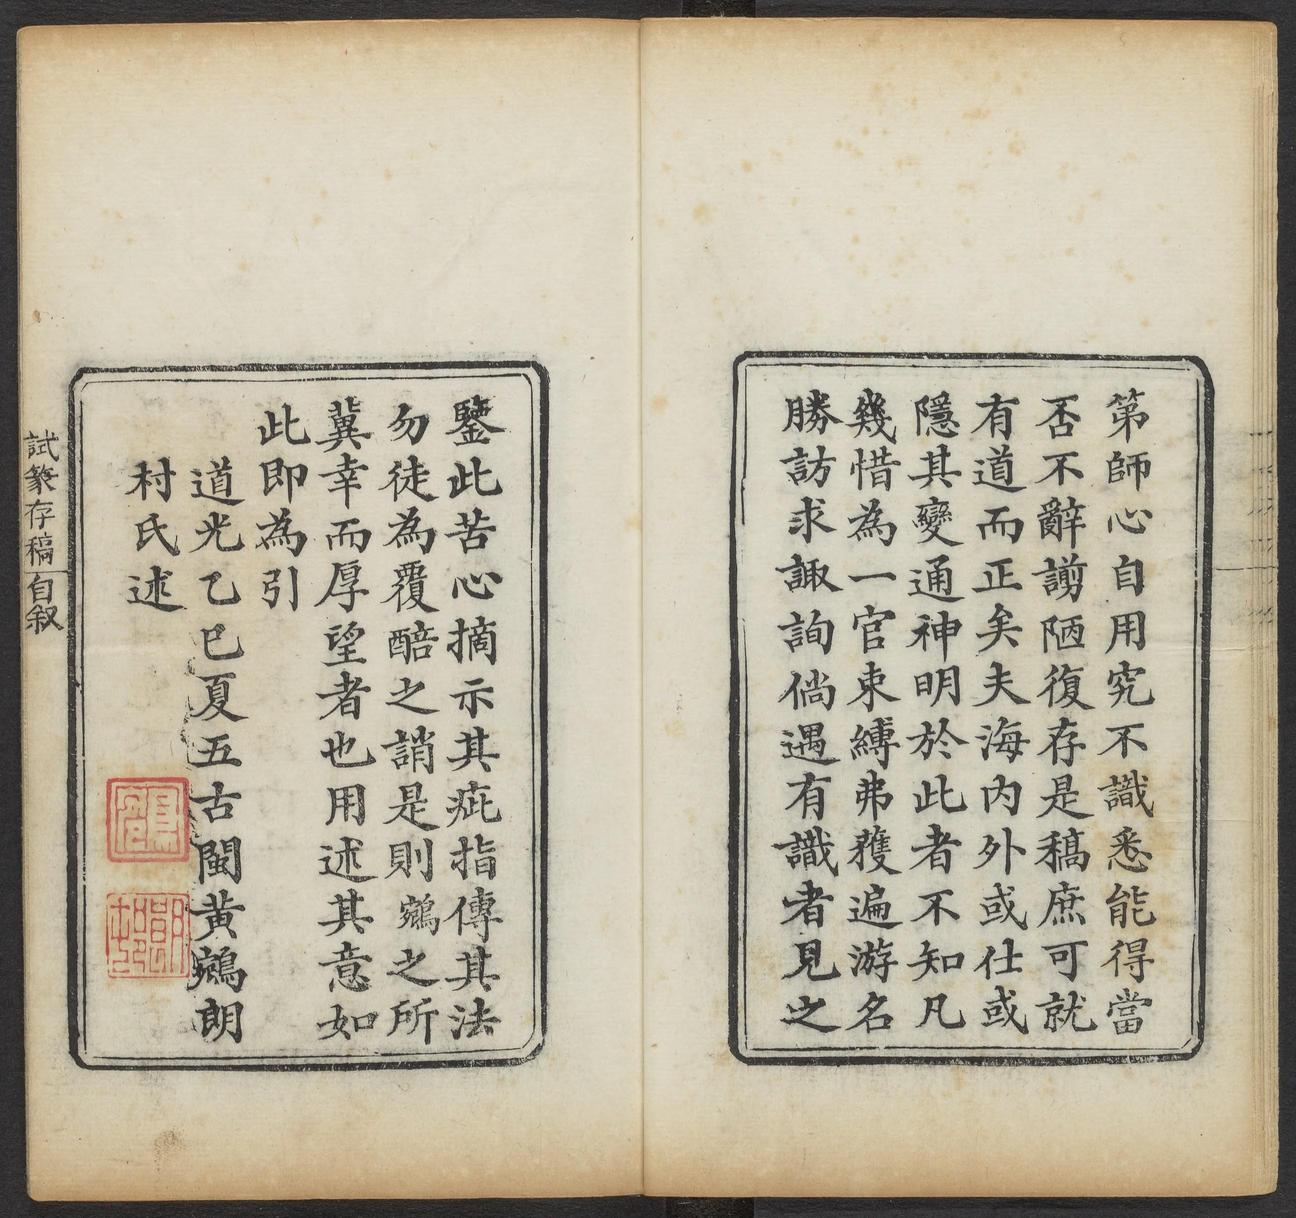 第師心自用究不識悉能得當
否不辭謭陋復存是稿庶可就
有道而正矣夫海內外或仕或
隱其變通神明於此者不知凡
幾惜為一官束縛弗獲遍游名
勝訪求諏詢倘遇有識者見之
鑒此苦心摘示其疵指傳其法
勿徒為覆醅之誚是則鵷之所
冀幸而厚望者也用述其意如
此即為引
道光乙巳夏五古閩黃鵷朗
村氏述
試篆存稿
自叙
朗邨